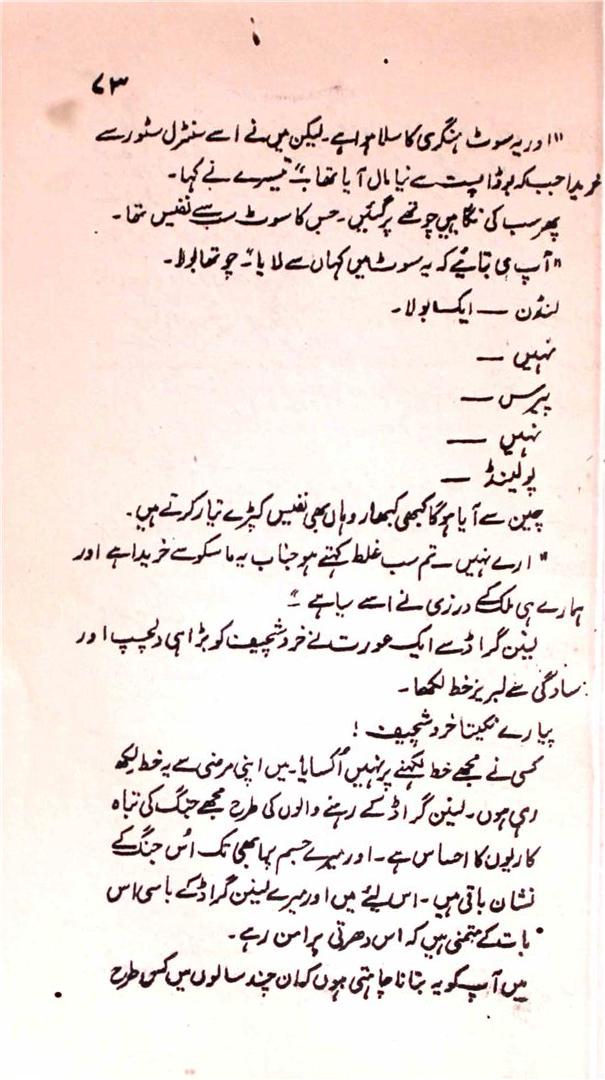 ۷۳
"اور یہ سوٹ ہنگری کا سلا ہوا ہے۔ لیکن میں نے اسے سنٹرل سٹور سے
خریدا جب کہ بوڈاپسٹ سے نیا مال آیا تھا۔" تیسرے نے کہا۔
پھر سب کی نگاہیں چوتھے پر گئیں۔ جس کا سوٹ سب سے نفیس تھا۔
"آپ ہی بتائیے کہ یہ سوٹ میں کہاں سے لایا"۔ چوتھا بولا۔
لنڈن — ایک سا بولا۔
نہیں —
پیرس —
نہیں —
پولینڈ —
چین سے آیا ہوگا کبھی کبھار وہاں بھی نفیس کپڑے تیار کرتے ہیں۔
"ارے نہیں۔ تم سب غلط کہتے ہو جناب یہ ماسکو سے خریدا ہے اور
ہمارے ہی ملک کے درزی نے اسے سیا ہے۔"
لینن گراڈ سے ایک عورت نے خروشچیف کو بڑا ہی دلچسپ اور
سادگی سے لبریز خط لکھا۔
پیارے نکیتا خروشچیف!
کسی نے مجھے خط لکھنے پر نہیں اُکسایا۔ میں اپنی مرضی سے یہ خط لکھ
رہی ہوں۔ لینن گراڈ کے رہنے والوں کی طرح مجھے جنگ کی تباہ
کاریوں کا احساس ہے۔ اور میرے جسم پر ابھی تک اُس جنگ کے
نشان باقی ہیں۔ اس لیئے میں اور میرے لینن گراڈ کے باسی اس
بات کے متمنی ہیں کہ اس دھرتی پر امن رہے۔
میں آپ کو یہ بتانا چاہتی ہوں کہ ان چند سالوں میں کس طرح